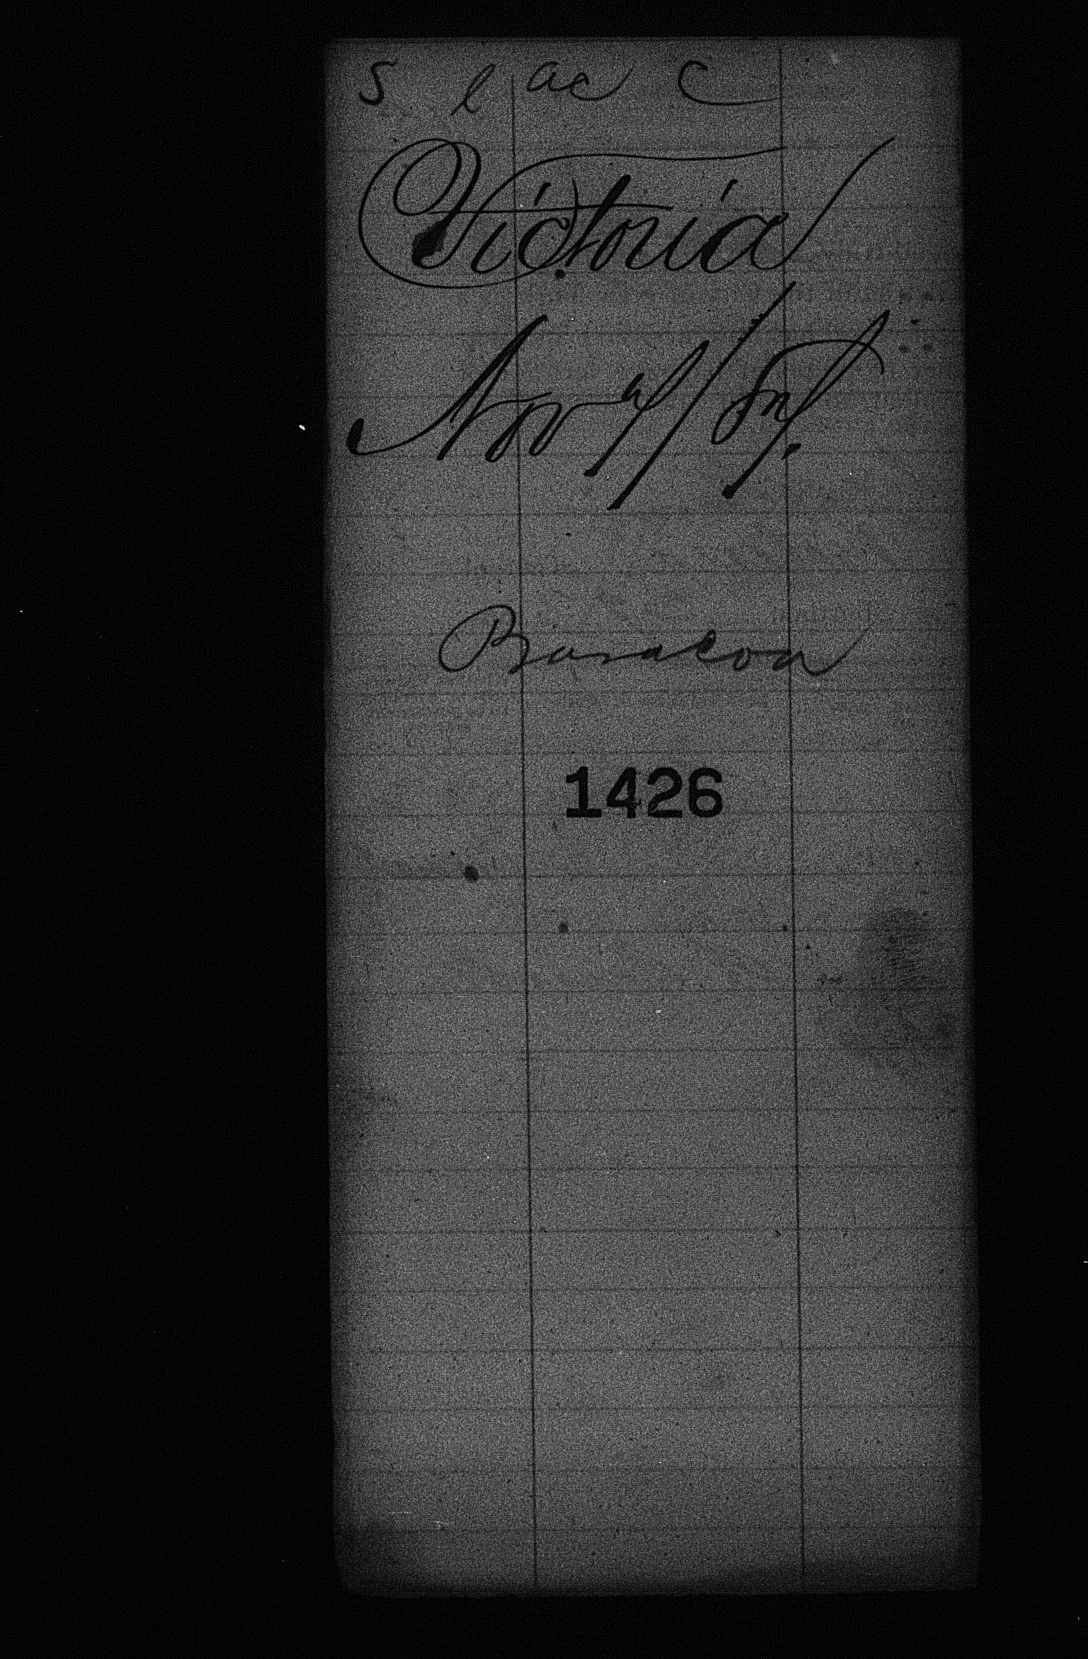 S l ac C
Victoria
Nov
Baracoa
1426